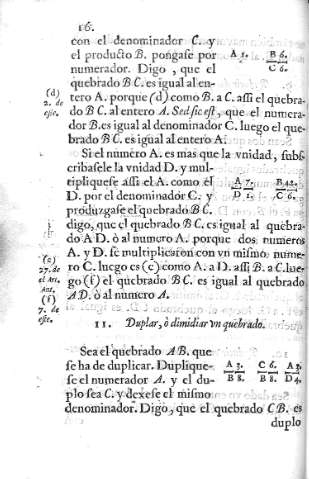 16.
con el denominador C. y
el producto B. pongase por
numerador. Digo, que el
quebrado B C. es igual al en-
A 1. B 6.
C 6.
(d)
2. de
este.
tero A. porque (d) como B. a C. assi el quebra-
do B C. al entero A. Sed sic est, que el numera-
dor B. es igual al denominador C. luego el que-
brado B C. es igual al entero A.
Si el numero A. es mas que la vnidad, subs
cribasele la vnidad D. y mul-
tipliquese assi el A. como el
D. por el denominador C. y
produzgase el quebrado B C.
A 7. B 42.
D 1. C 6.
digo, que el quebrado B C. es igual al quebra-
do A D. ò al numero A. porque dos numeros
A. y D. se multiplicaron con vn mismo nume-
ro C. luego es (e) como A. a D. assi B. a C. lue-
go (f) el quebrado B C. es igual al quebrado
A D. ò al numero A.
(e)
27. de
el Art.
Ant.
(f)
7. de
este.
11. Duplar, ò dimidiar vn quebrado.
Sea el quebrado A B. que
se ha de duplicar. Duplique-
se el numerador A. y el du-
plo sea C. y dexese el mismo
A 3. C 6. A 3.
B 8. B 8. D 4.
denominador. Digo, que el quebrado C B. es
duplo